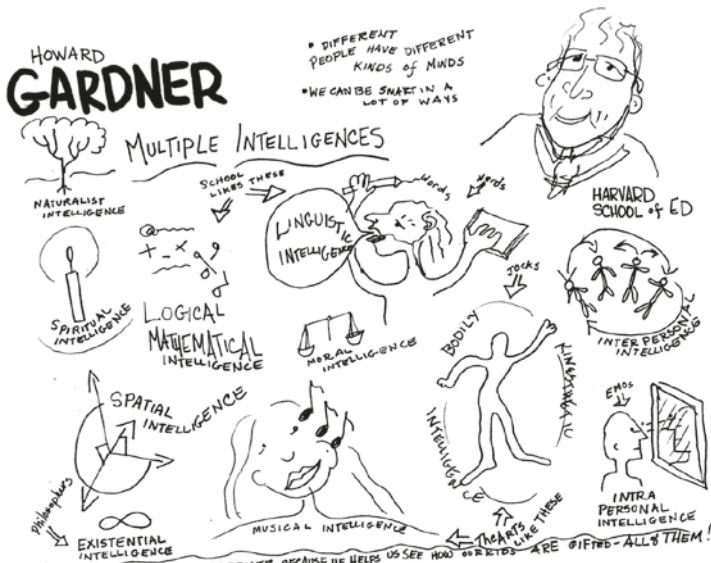 HOWARD
GARDNER
• DIFFERENT
PEOPLE HAVE DIFFERENT
KINDS of MINDS
• WE CAN BE SMART IN A
LOT OF WAYS
MULTIPLE INTELLIGENCES
NATURALIST
INTELLIGENCE
SCHOOL
LIKES THESE
Words
Nerds
LINGUISTIC
INTELLIGENCE
HARVARD
SCHOOL of ED
+ - x
SPIRITUAL
INTELLIGENCE
LOGICAL
MATHEMATICAL
INTELLIGENCE
MORAL INTELLIGENCE
JOCKS
BODILY
KINESTHETIC
INTELLIGENCE
INTERPERSONAL
INTELLIGENCE
SPATIAL
INTELLIGENCE
EMOS
INTRA
PERSONAL
INTELLIGENCE
MUSICAL INTELLIGENCE
The ARTS
LIKE THESE
Philosophers
EXISTENTIAL
INTELLIGENCE
BECAUSE HE HELPS US SEE HOW OUR KIDS ARE GIFTED - ALL of THEM!